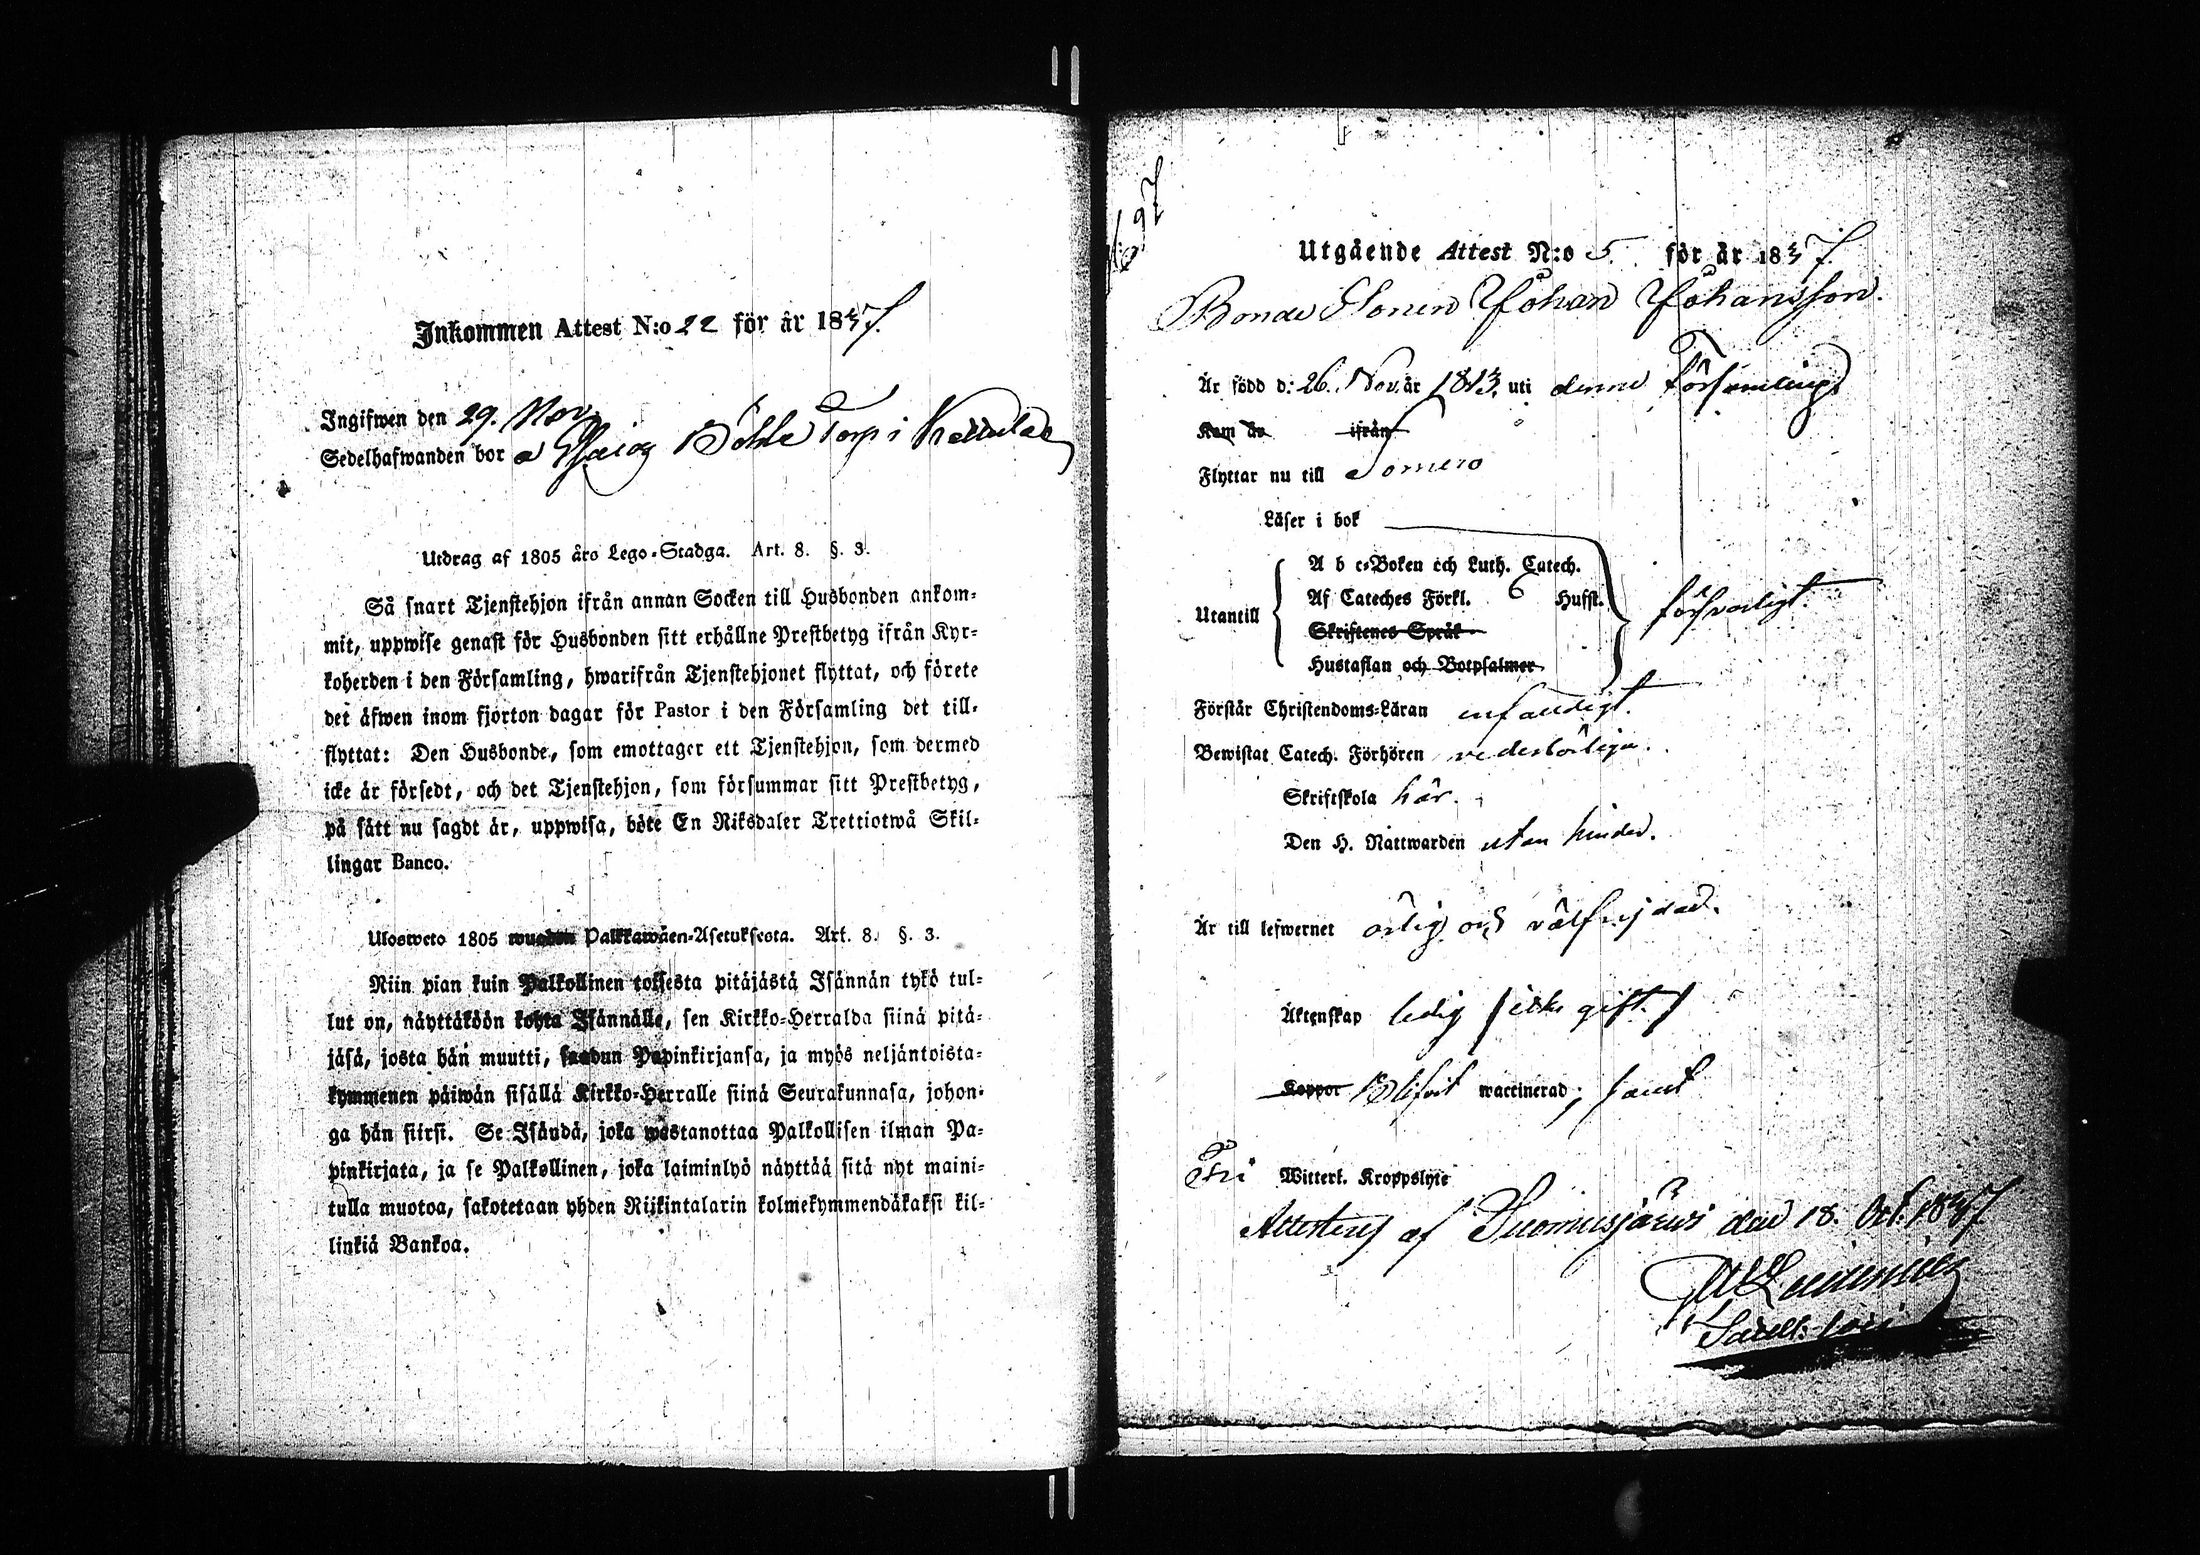 Inkommen Attest N:o 22 för år 1837.
Ingifwen den 29. Nov.
Sedelhafwanden bor å Torp i
Utdrag af 1805 års Lego-Stadga. Art. 8. §. 3.
Så snart Tjenstehjon ifrån annan Socken till Husbonden ankom-
mit, uppwise genast för Husbonden sitt erhållne Prestbetyg ifrån Kyr-
koherden i den Församling, hwarifrån Tjenstehjonet flyttat, och förete
det äfwen inom fjorton dagar för Pastor i den Församling det till-
flyttat: Den Husbonde, som emottager ett Tjenstehjon, som dermed
icke är försedt, och det Tjenstehjon, som försummar sitt Prestbetyg,
på sätt nu sagdt är, uppwisa, böte En Riksdaler Trettiotwå Skil-
lingar Banco.
Ulosweto 1805 wuoden Palkkawäen-Asetuksesta. Art. 8. §. 3.
Niin pian kuin Palkollinen toisesta pitäjästä Isännän tykö tul-
lut on, näyttäköön kohta Isännälle, sen Kirkko-Herralda siinä pitä-
jäsä, josta hän muutti, saadun Papinkirjansa, ja myös neljäntoista-
kymmenen päiwän sisällä Kirkko-Herralle siinä Seurakunnasa, johon-
ga hän siirsi. Se Isändä, joka wastanottaa Palkollisen ilman Pa-
pinkirjata, ja se Palkollinen, joka laiminlyö näyttää sitä nyt maini-
tulla muotoa, sakotetaan yhden Riikintalarin kolmekymmendäkaksi kil-
linkiä Bankoa.
697
Utgående Attest N:o 5. för år 1837.
Bonde Sonen Johan Johansson.
Är född d: 26. Nov. år 1813. uti denna Församling
Kom år ifrån
Flyttar nu till Somero
Läser i bok
Utantill
A b c-Boken och Luth. Catech.
Af Cateches Förkl. 6 Hufst.
Skriftenes Språk
Hustaflan och Botpsalmer
försvarligt.
Förstår Christendoms-Läran enfaldigt.
Bewistat Catech. Förhören vederbörligen.
Skriftskola här.
Den H. Nattwarden utan hinder.
Är till lefwernet ärlig och välfrejdad.
Äktenskap ledig (icke gift.)
Koppor Blifvit waccinerad; samt
Fri Witterl. Kroppslyte
Attesteras af Suomusjärvi den 18. Oct. 1837